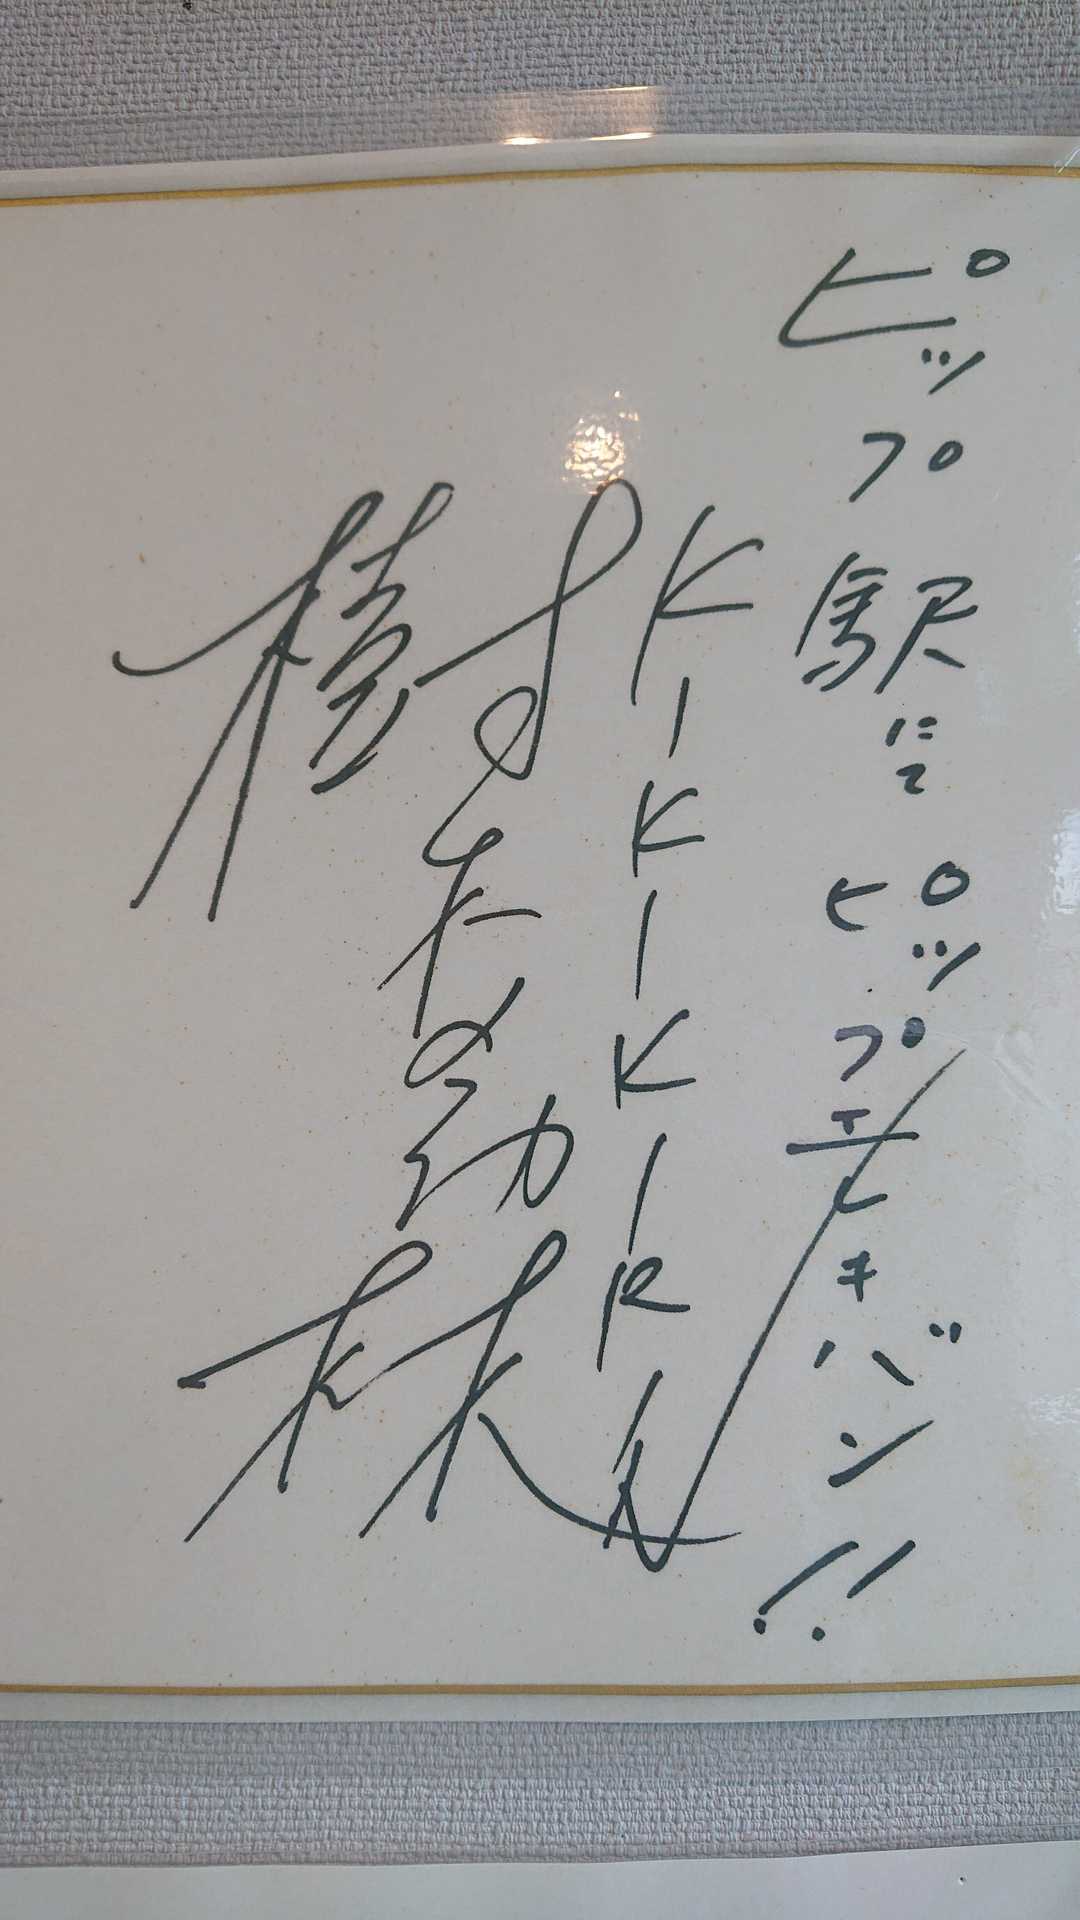 ピップ駅にて ピップエレキバン!!
KIKIKIRIN
樹木希林